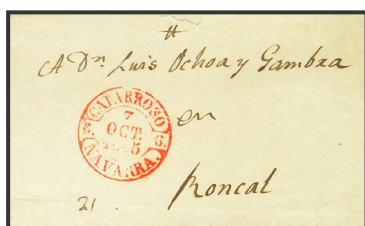 #
A Dn. Luis Ochoa y Gambra
CAPARROSO
7
OCT.
6.
NAVARRA.
en
Roncal
21.